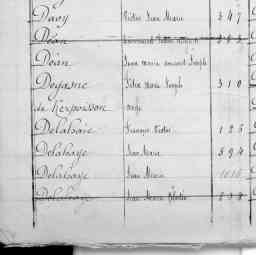 Davy Victor Jean Marie 347
Déan
Déan Jean marie amand Joseph
Degasne Félix Marie Joseph 310
de Kerpoisson
Delahaie François Victor 125
Delahaye Jean Marie 394
Delahaye Jean Marie 1016
Delahaie Jean Marie